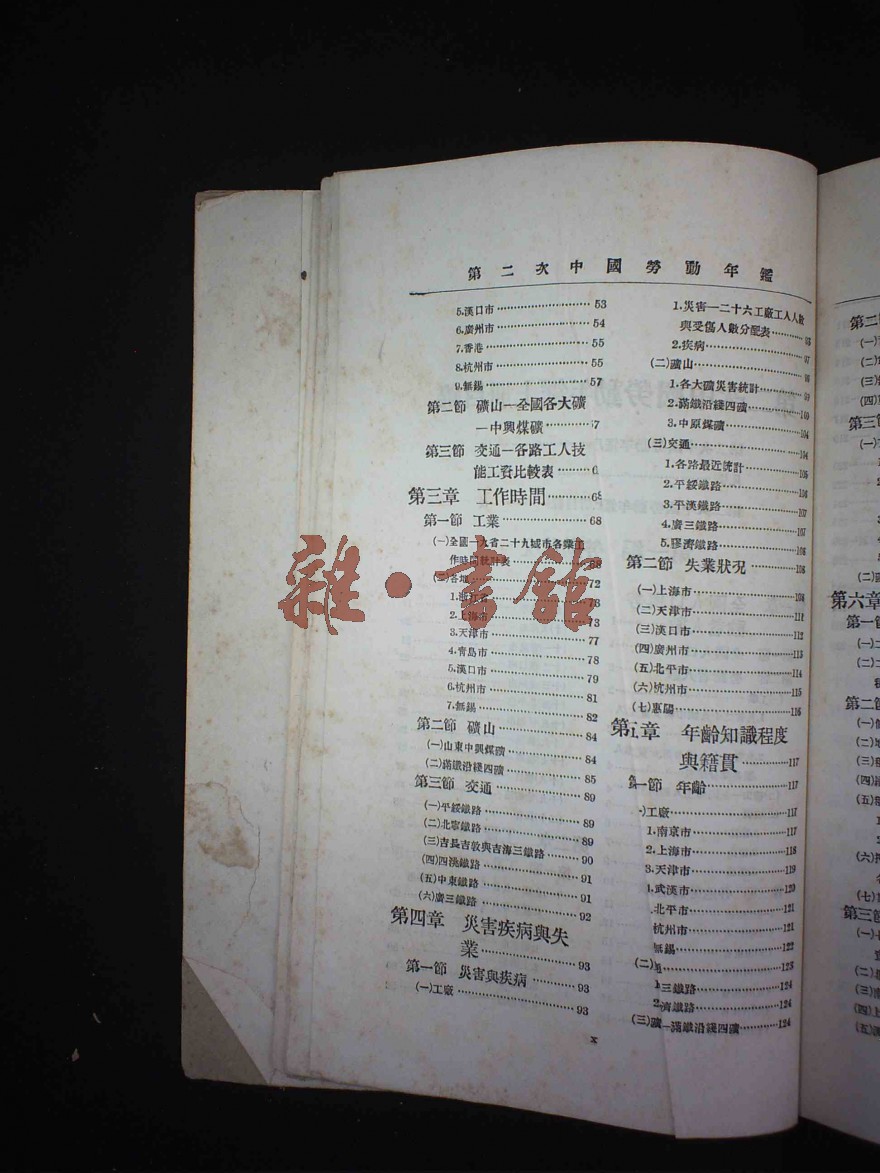 第二次中國勞動年鑑
5.漢口市 53
6.廣州市 54
7.香港 55
8.杭州市 55
9.無錫 57
第二節 礦山—全國各大礦
—中興煤礦
第三節 交通—各路工人技
能工資比較表
第三章 工作時間 68
第一節 工業 68
(一)全國一九省二十九城市各業工
作時間統計表 68
72
73
2.上海市 73
3.天津市 77
4.青島市 78
5.漢口市 79
6.杭州市 81
7.無錫 82
第二節 礦山 84
(一)山東中興煤礦 84
(二)滿鐵沿綫四礦 85
第三節 交通 89
(一)平綏鐵路 89
(二)北寧鐵路 89
(三)吉長吉敦與吉海三鐵路 90
(四)四洮鐵路 91
(五)中東鐵路 91
(六)廣三鐵路 92
第四章 災害疾病與失
業 93
第一節 災害與疾病 93
(一)工廠 93
1.災害—二十六工廠工人人數
與受傷人數分配表
2.疾病 97
(二)礦山
1.各大礦災害統計
2.滿鐵沿綫四礦 100
3.中原煤礦 104
(三)交通 104
1.各路最近統計 105
2.平綏鐵路 106
3.平漢鐵路 107
4.廣三鐵路 107
5.膠濟鐵路 108
第二節 失業狀况 108
(一)上海市 108
(二)天津市 111
(三)漢口市 112
(四)廣州市 113
(五)北平市 114
(六)杭州市 115
(七)惠陽 116
第五章 年齡知識程度
與籍貫 117
第一節 年齡 117
工廠 117
1.南京市 117
2.上海市 118
3.天津市 119
武漢市 120
北平市 121
杭州市 121
無錫 122
(二) 123
三鐵路 124
濟鐵路 124
(三)礦—滿鐵沿綫四礦 124
x
雜·書館
第六章
第一節
第二節
第三節